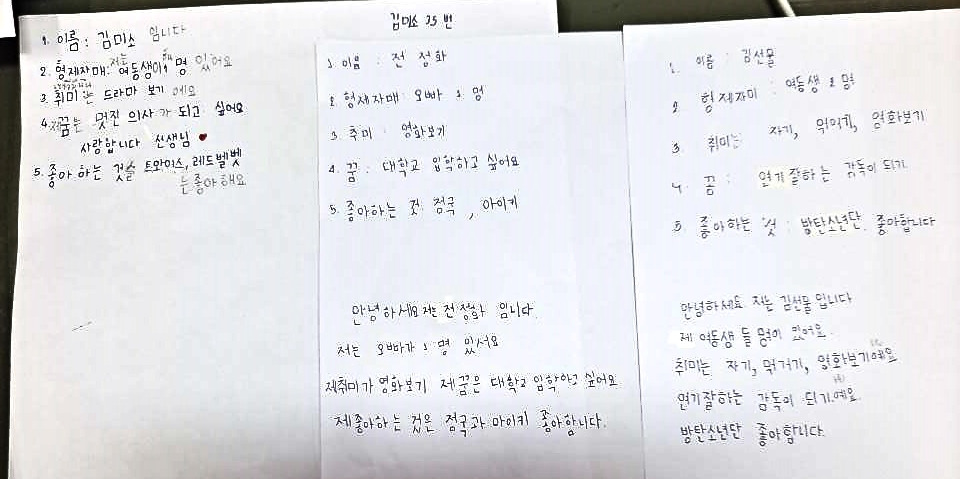 김미소 25 번
1. 이름 : 김미소 입니다
2. 형제자매: 저는 여동생이 명 있어요
3. 취미는 드라마 보기 예요
4. 제꿈는 멋진 의사가 되고 싶어요
사랑합니다 선생님
5. 좋아 하는 것을 트와익스, 레드벨벳
는좋아해요
1 이름 : 전 정화
2 형제자매: 오빠 1 명
3 취미 : 영화보기
4. 꿈 : 대학교 입학하고 싶어요
5. 좋아하는 것: 정국 , 아이키
안녕하세요 저는 전정화 입니다.
저는 오빠가 1 명 있서요
제취미가 영화보기 제꿈은 대학교 입학하고 싶어요
제좋아하는 것은 정국과 아이키 좋아합니다.
1. 이름 : 김선물
2 형제자미 : 여동생 2 명
3. 취미는 자기, 먹어기, 영화보기
4. 꿈 : 연기잘하는 감독이 되기.
5. 좋아하는 것 : 방탄소년단. 좋아합니다
안녕하세요 저는 김선물입니다
제 여동생 들 멍이 있어요.
취미는 자기, 먹거기, 영화보기예요
연기잘하는 감독이 되기.예요.
방탄소년단 좋아합니다.